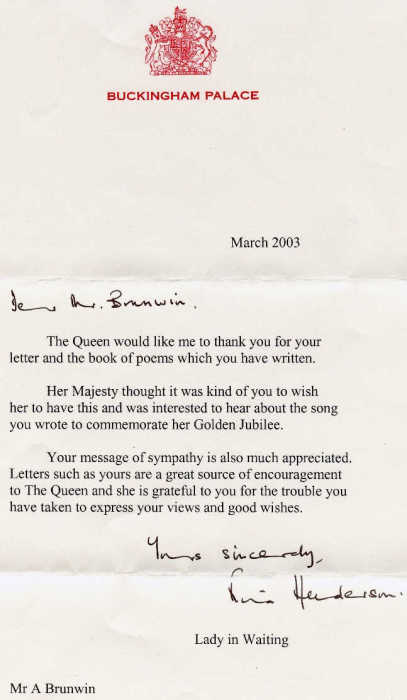 BUCKINGHAM PALACE
March 2003
Dear Mr. Brunwin.
The Queen would like me to thank you for your
letter and the book of poems which you have written.
Her Majesty thought it was kind of you to wish
her to have this and was interested to hear about the song
you wrote to commemorate her Golden Jubilee.
Your message of sympathy is also much appreciated.
Letters such as yours are a great source of encouragement
to The Queen and she is grateful to you for the trouble you
have taken to express your views and good wishes.
Yours sincerely,
Henderson.
Lady in Waiting
Mr A Brunwin